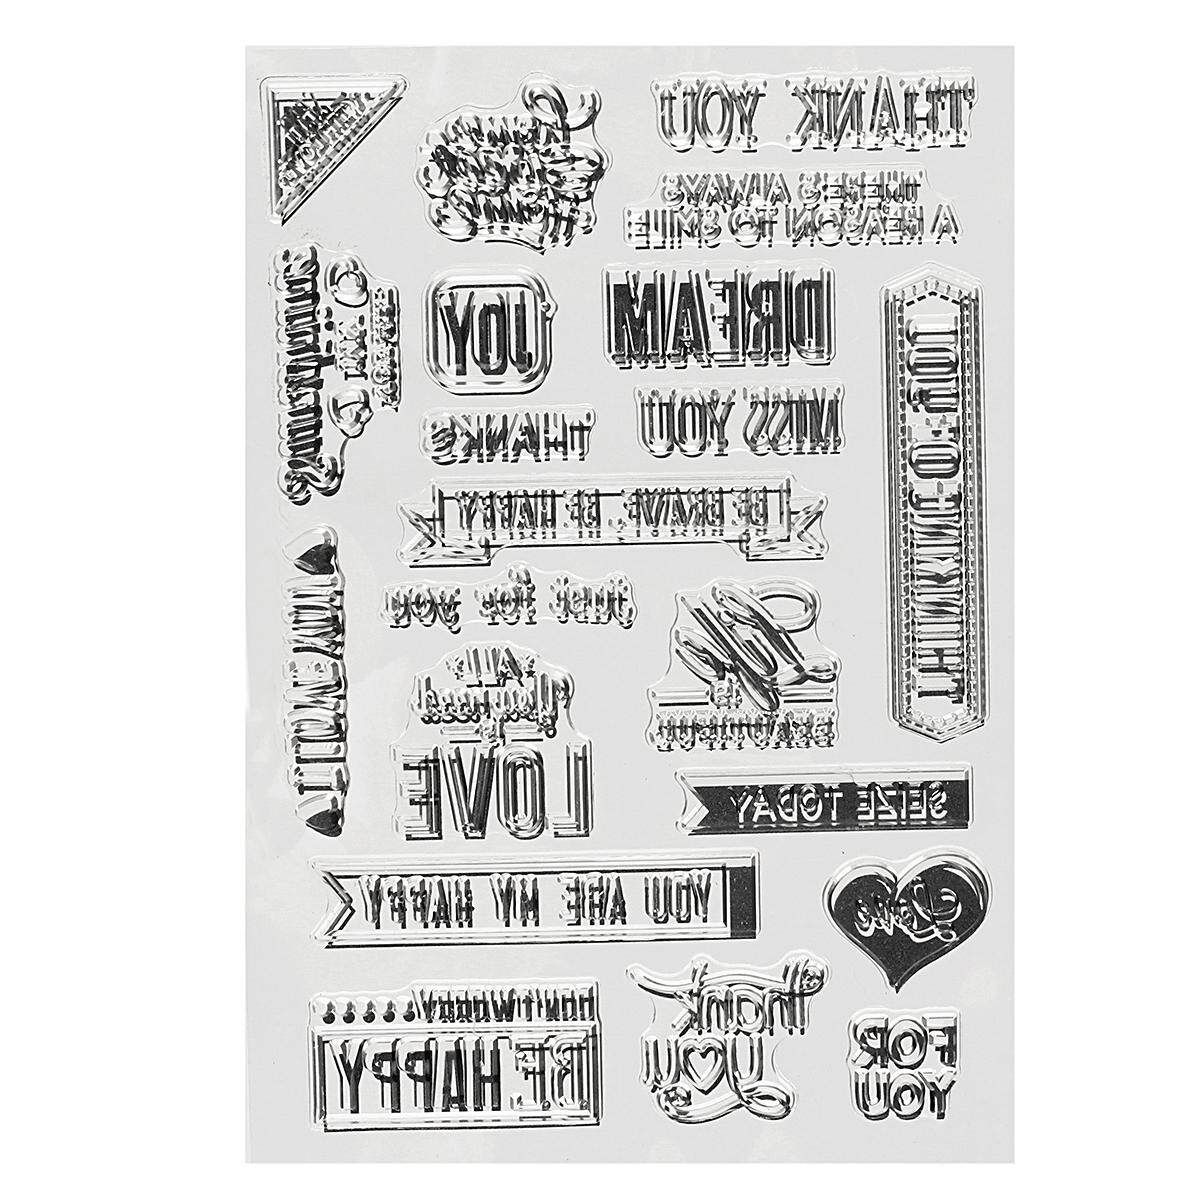 THANK YOU
THERE'S ALWAYS
A REASON TO SMILE
JOY
DREAM
THANKS
MISS YOU
THINKING OF YOU
BE BRAVE, BE HAPPY
just for you
Life
is
BEAUTIFUL
ALL
you need
is
LOVE
YOU ARE MY HAPPY
SEIZE TODAY
Love
Don't worry
BE HAPPY
Thank
you
FOR
YOU